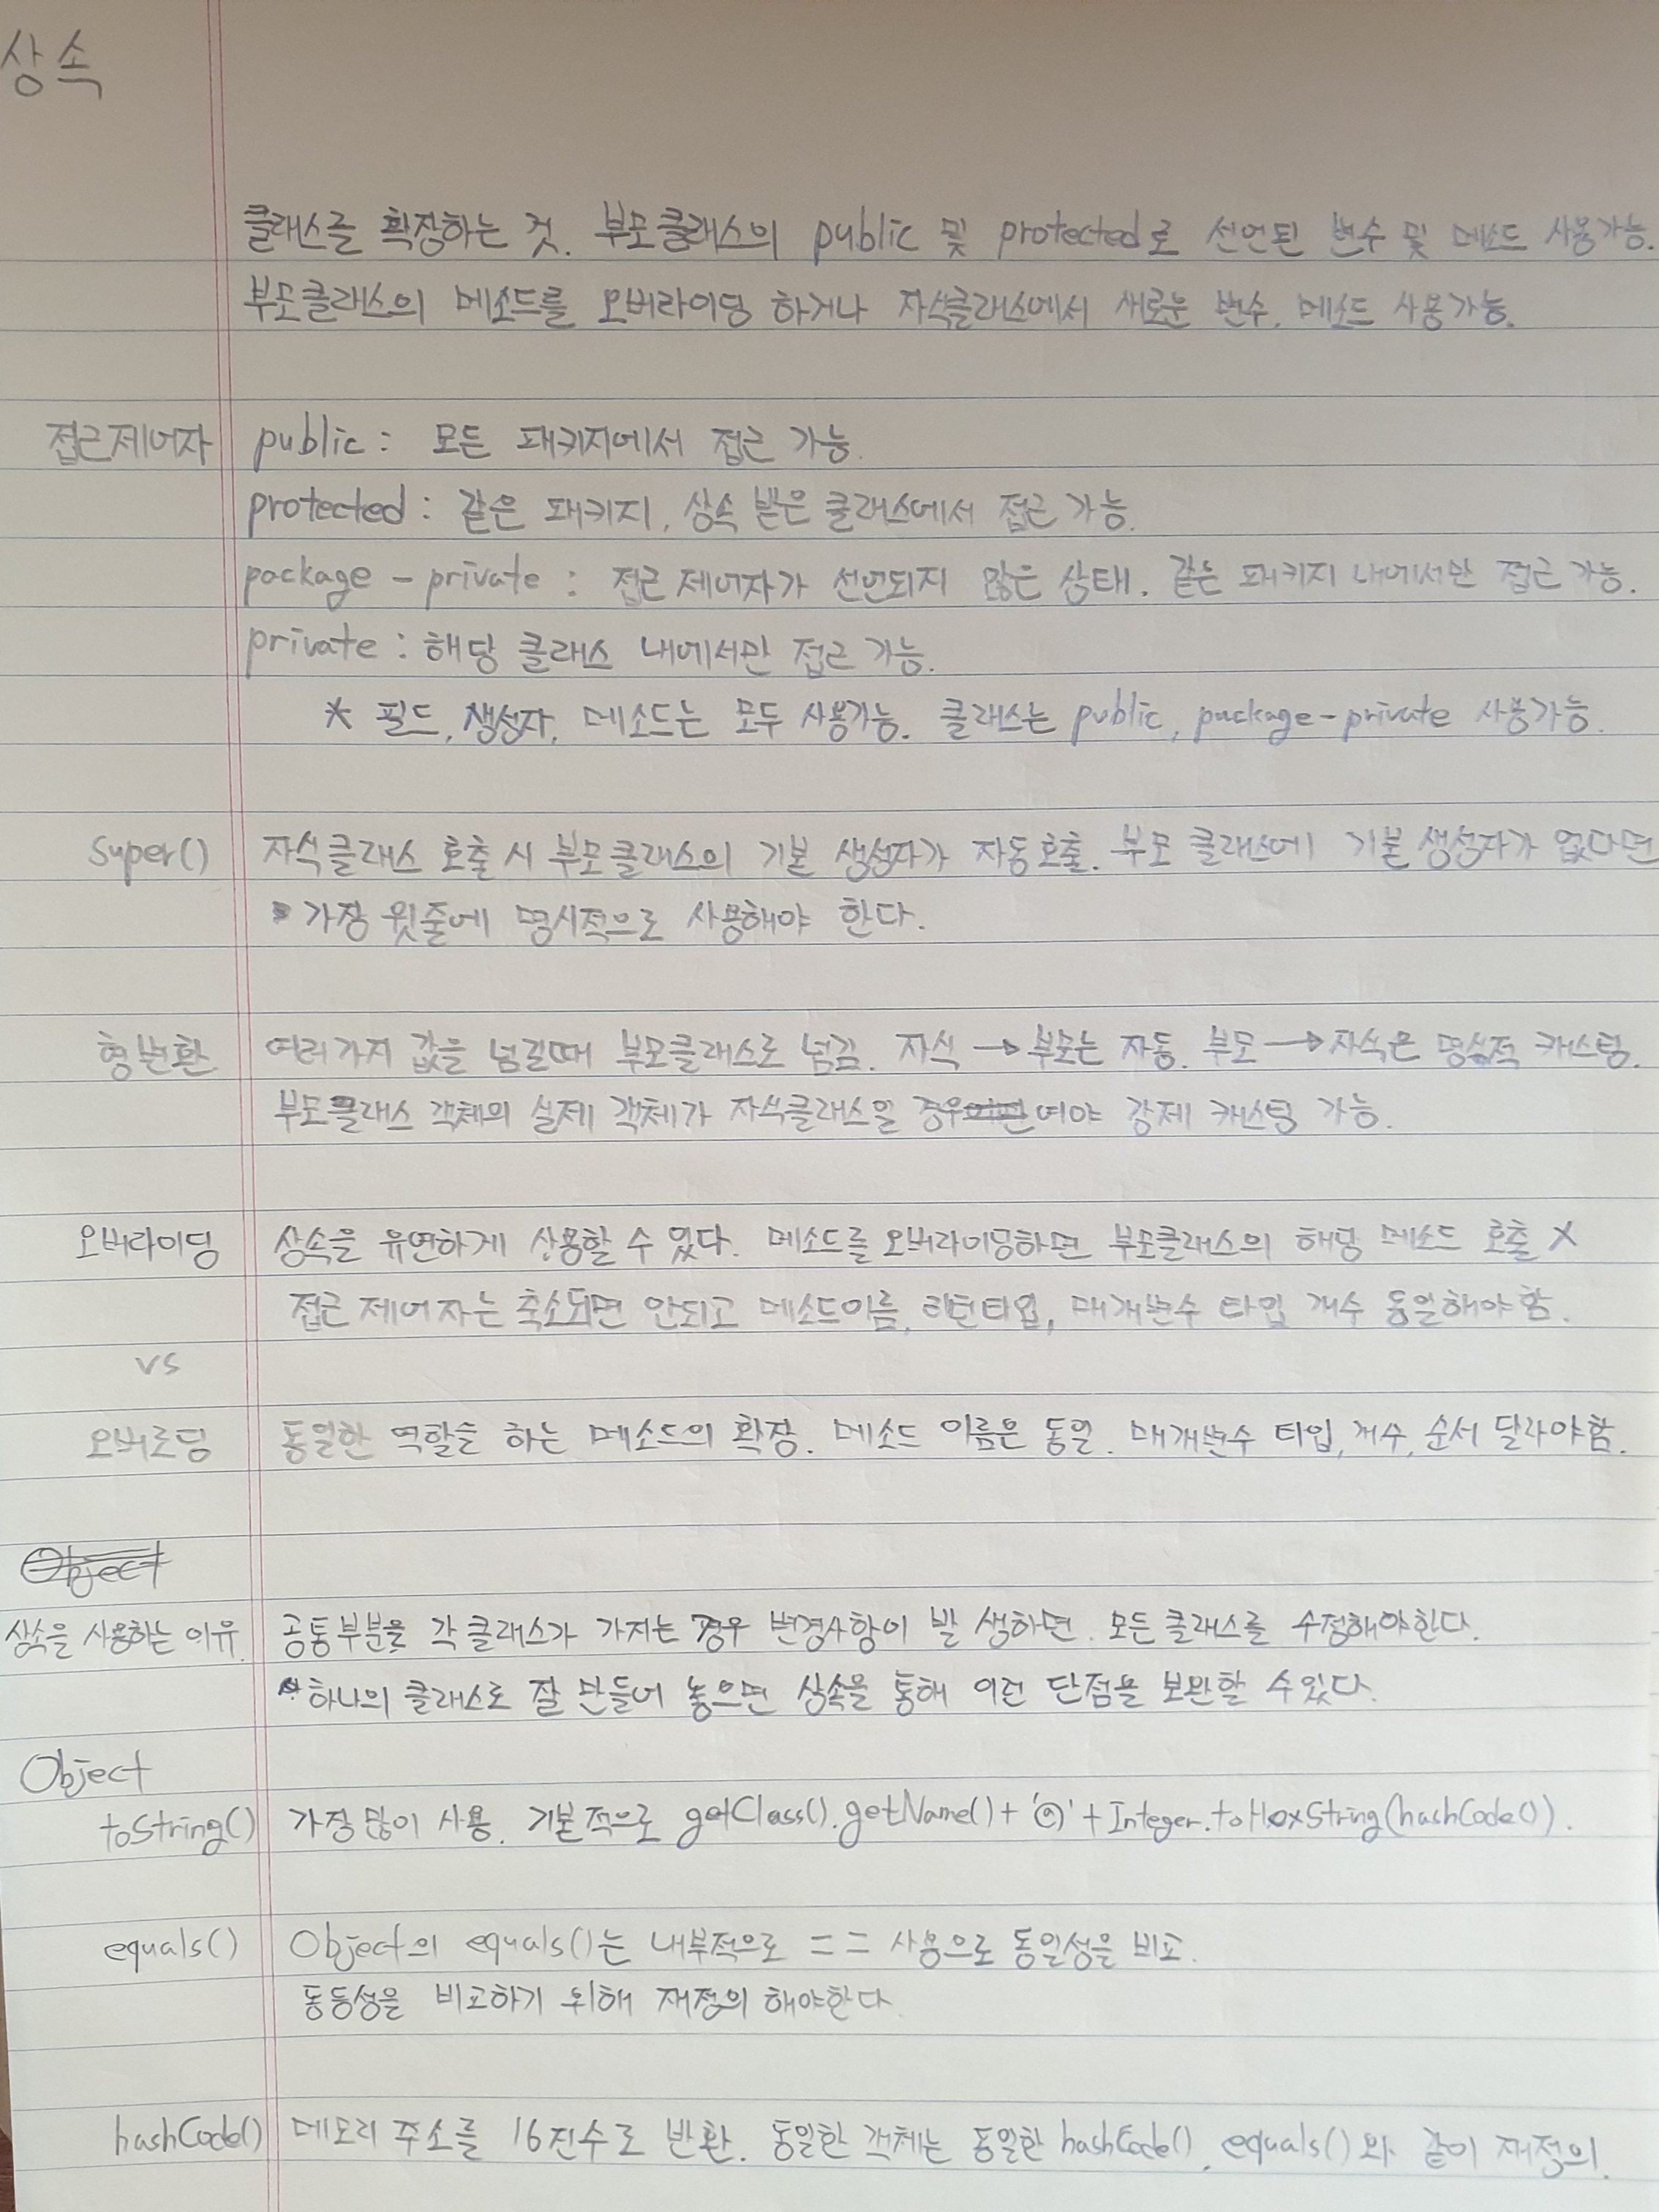 상속
클래스를 확장하는 것. 부모클래스의 public 및 protected로 선언된 변수 및 메소드 사용가능.
부모클래스의 메소드를 오버라이딩 하거나 자식클래스에서 새로운 변수, 메소드 사용가능.
접근제어자 public : 모든 패키지에서 접근 가능.
protected : 같은 패키지, 상속 받은 클래스에서 접근 가능.
package - private : 접근 제어자가 선언되지 않은 상태. 같은 패키지 내에서만 접근 가능.
private : 해당 클래스 내에서만 접근 가능.
* 필드, 생성자, 메소드는 모두 사용가능. 클래스는 public, package-private 사용가능.
super() 자식클래스 호출 시 부모클래스의 기본 생성자가 자동호출. 부모 클래스에 기본 생성자가 없다면
가장 윗줄에 명시적으로 사용해야 한다.
형변환 여러가지 값을 넘길때 부모클래스로 넘김. 자식 → 부모는 자동. 부모 → 자식은 명시적 캐스팅.
부모클래스 객체의 실제 객체가 자식클래스일 경우여야 강제 캐스팅 가능.
오버라이딩 상속을 유연하게 사용할 수 있다. 메소드를 오버라이딩하면 부모클래스의 해당 메소드 호출 X
접근 제어자는 축소되면 안되고 메소드이름, 리턴타입, 매개변수 타입 개수 동일해야함.
vs
오버로딩 동일한 역할을 하는 메소드의 확장. 메소드 이름은 동일. 매개변수 타입, 개수, 순서 달라야함.
Object
상속을 사용하는 이유. 공통부분을 각 클래스가 가지는 경우 변경사항이 발생하면. 모든 클래스를 수정해야한다.
하나의 클래스로 잘 만들어 놓으면 상속을 통해 이런 단점을 보완할 수있다.
Object
toString() 가장 많이 사용. 기본적으로 getClass().getName() + '@' + Integer.toHexString(hashCode()).
equals() Object의 equals()는 내부적으로 == 사용으로 동일성을 비교.
동등성을 비교하기 위해 재정의 해야한다.
hashCode() 메모리 주소를 16진수로 반환. 동일한 객체는 동일한 hashCode(). equals()와 같이 재정의.